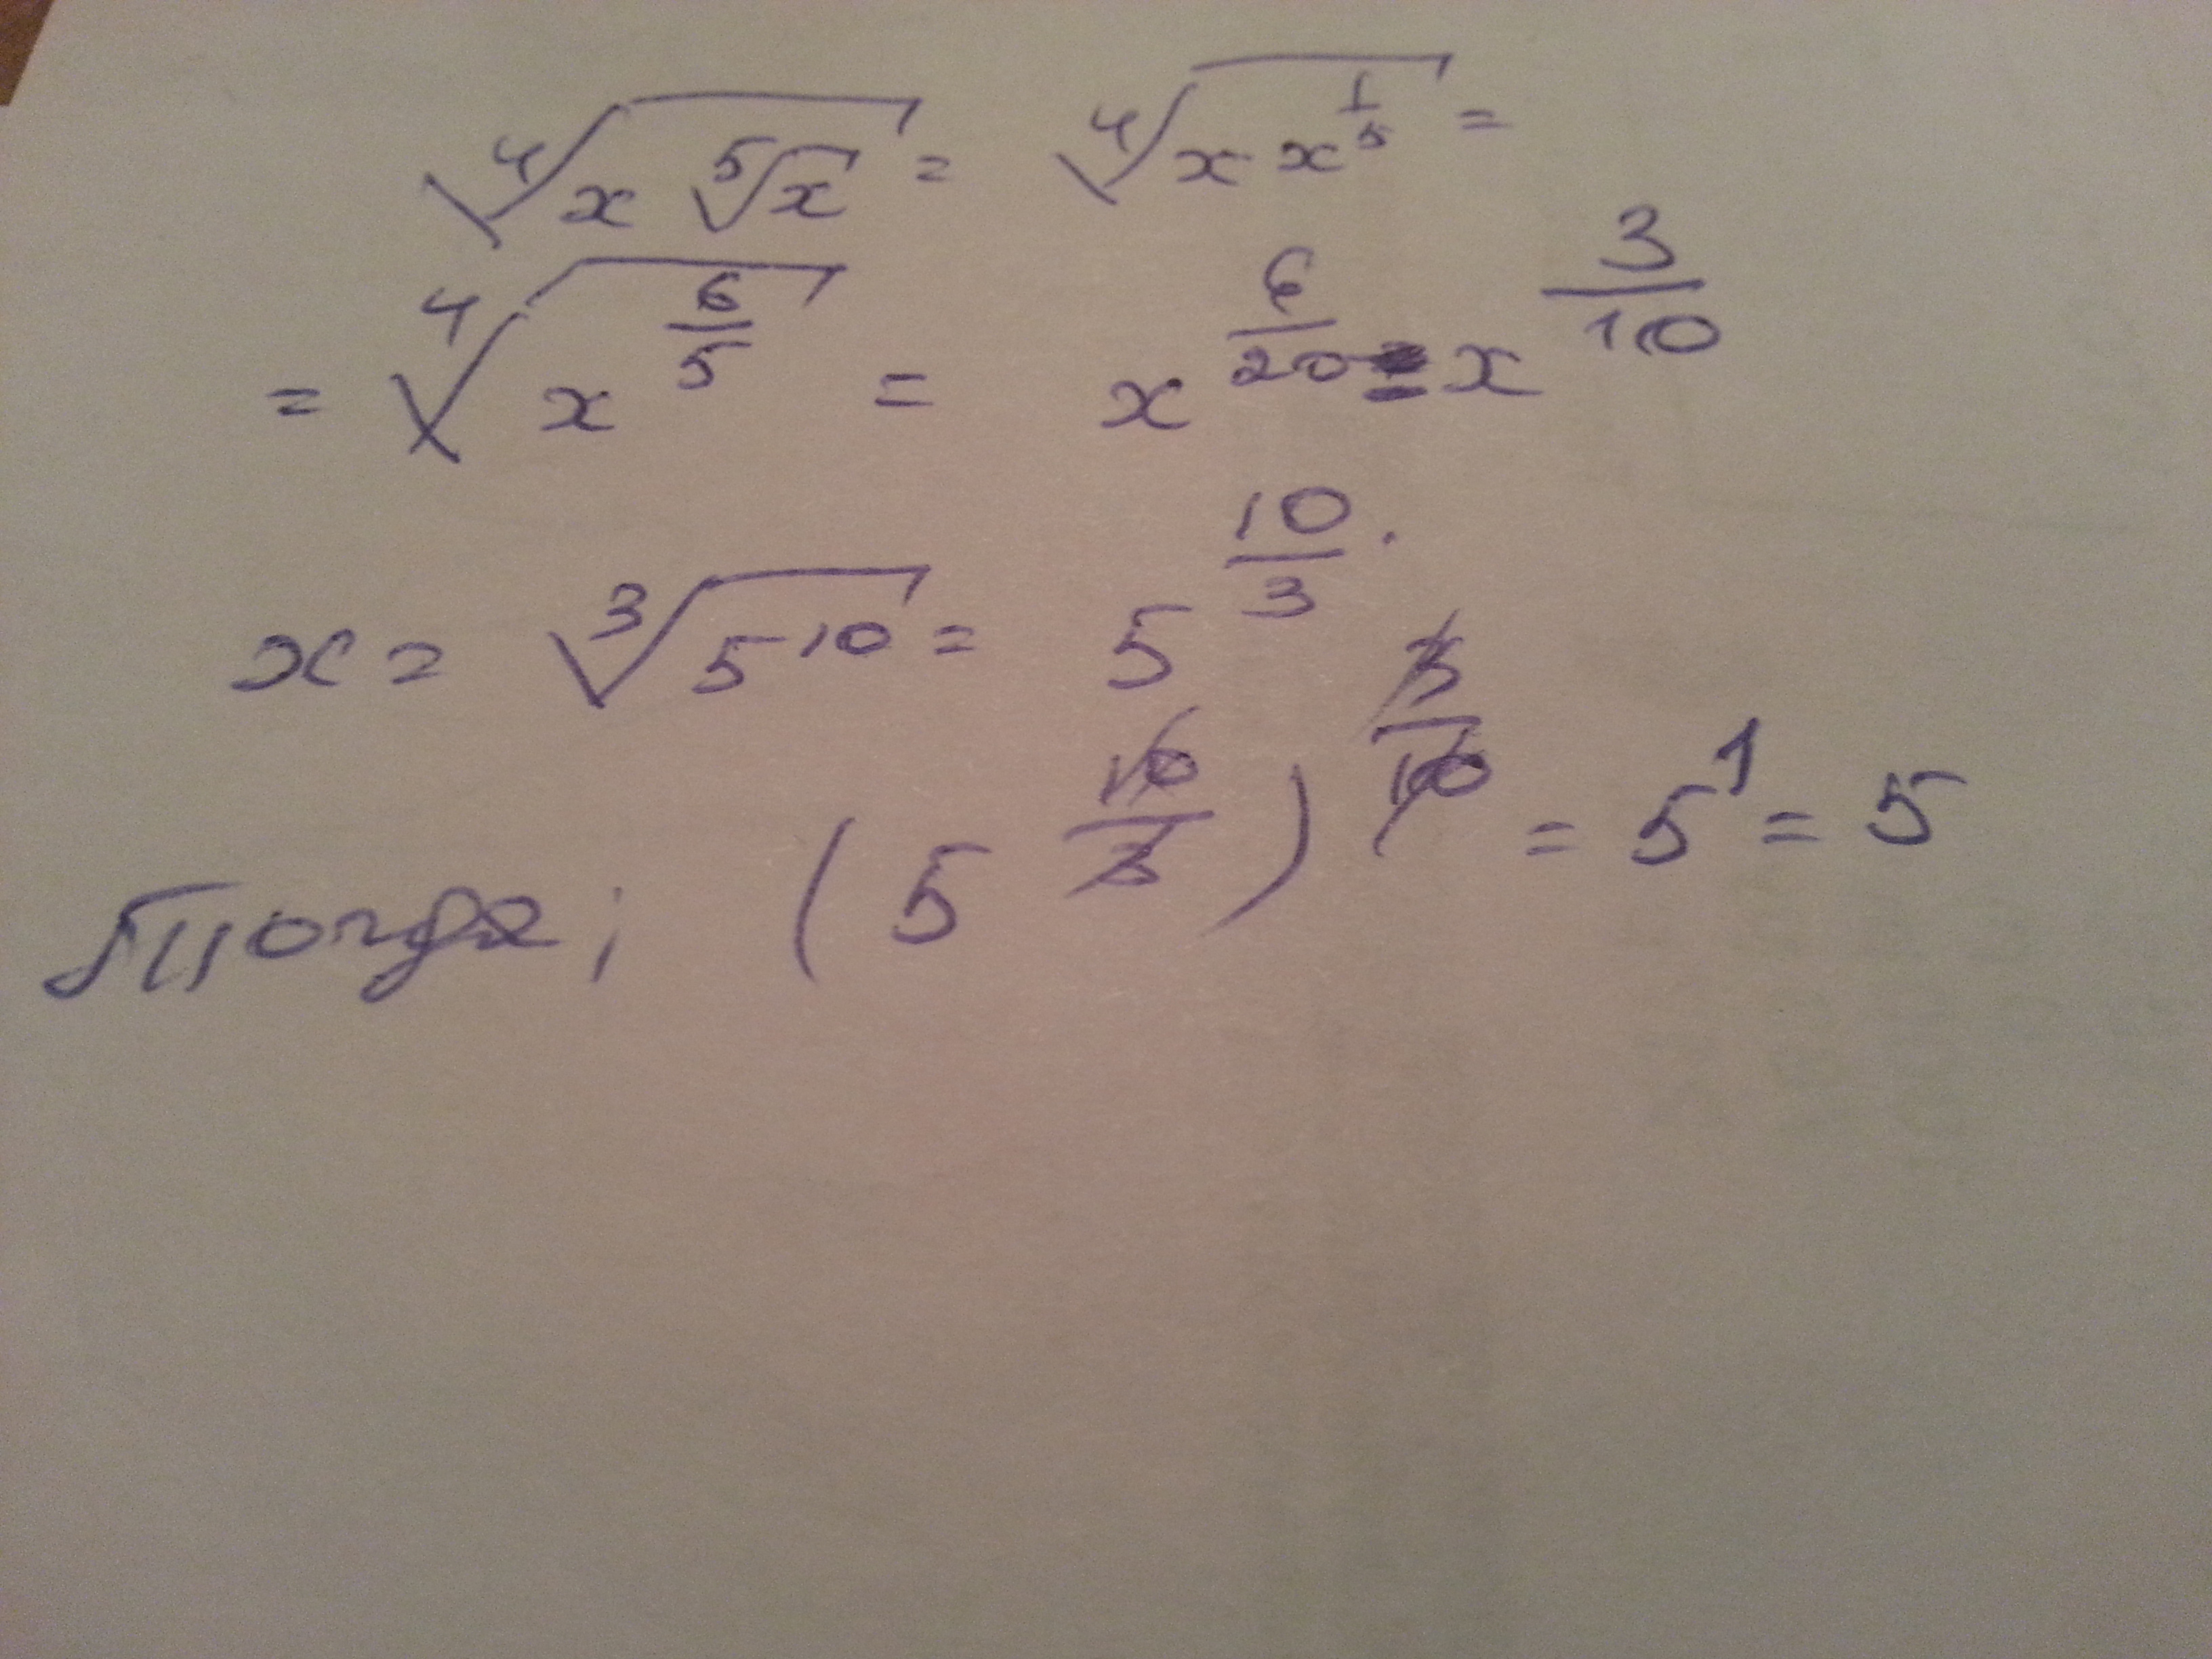 ⁴√(x ⁵√x) = ⁴√(x x^(1/5)) =
= ⁴√(x^(6/5)) = x^(6/20) = x^(3/10)
x = ³√(5^10) = 5^(10/3).
Тогда; (5^(10/3))^(3/10) = 5^1 = 5